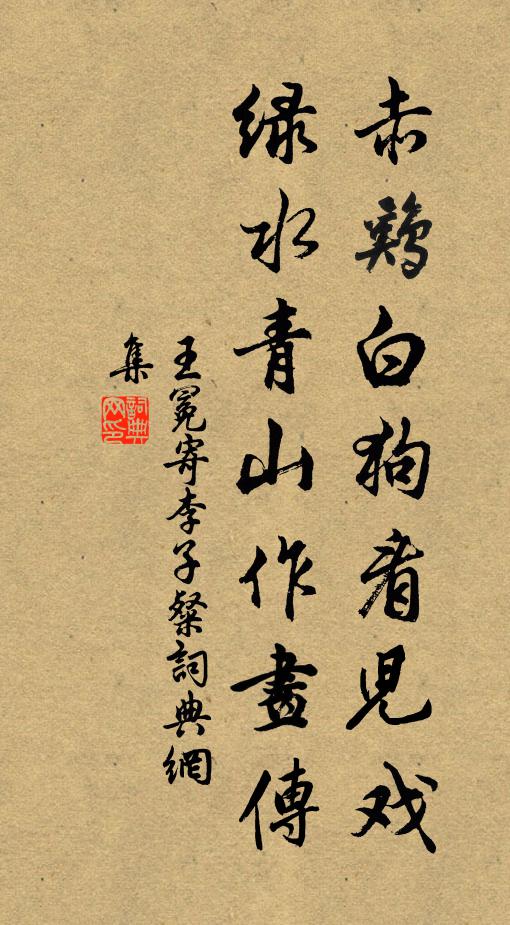 赤鷄白狗看兒戏
绿水青山作畫傳
王冕寄李子粲詞典網
集
詞典网印